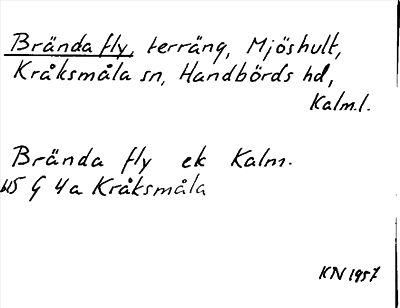 Brända fly, terräng, Mjöshult,
Kråksmåla sn, Handbörds hd,
Kalm.l.
Brända fly ek Kalm.
45 G 4a Kråksmåla
KN 1957